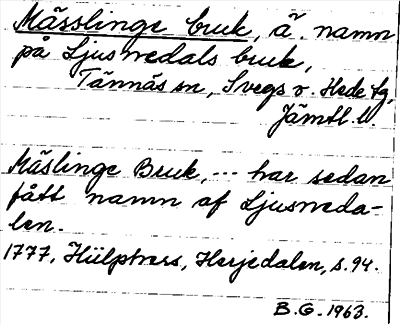 Mässlinge bruk, ä. namn
på Ljusnedals bruk,
Tännäs sn, Svegs o. Hede tg,
Jämtl. l.
Mäslinge Bruk, ... har sedan
fått namn af Ljusneda-
len.
1777, Hülphers, Herjedalen, s. 94.
B.G. 1963.